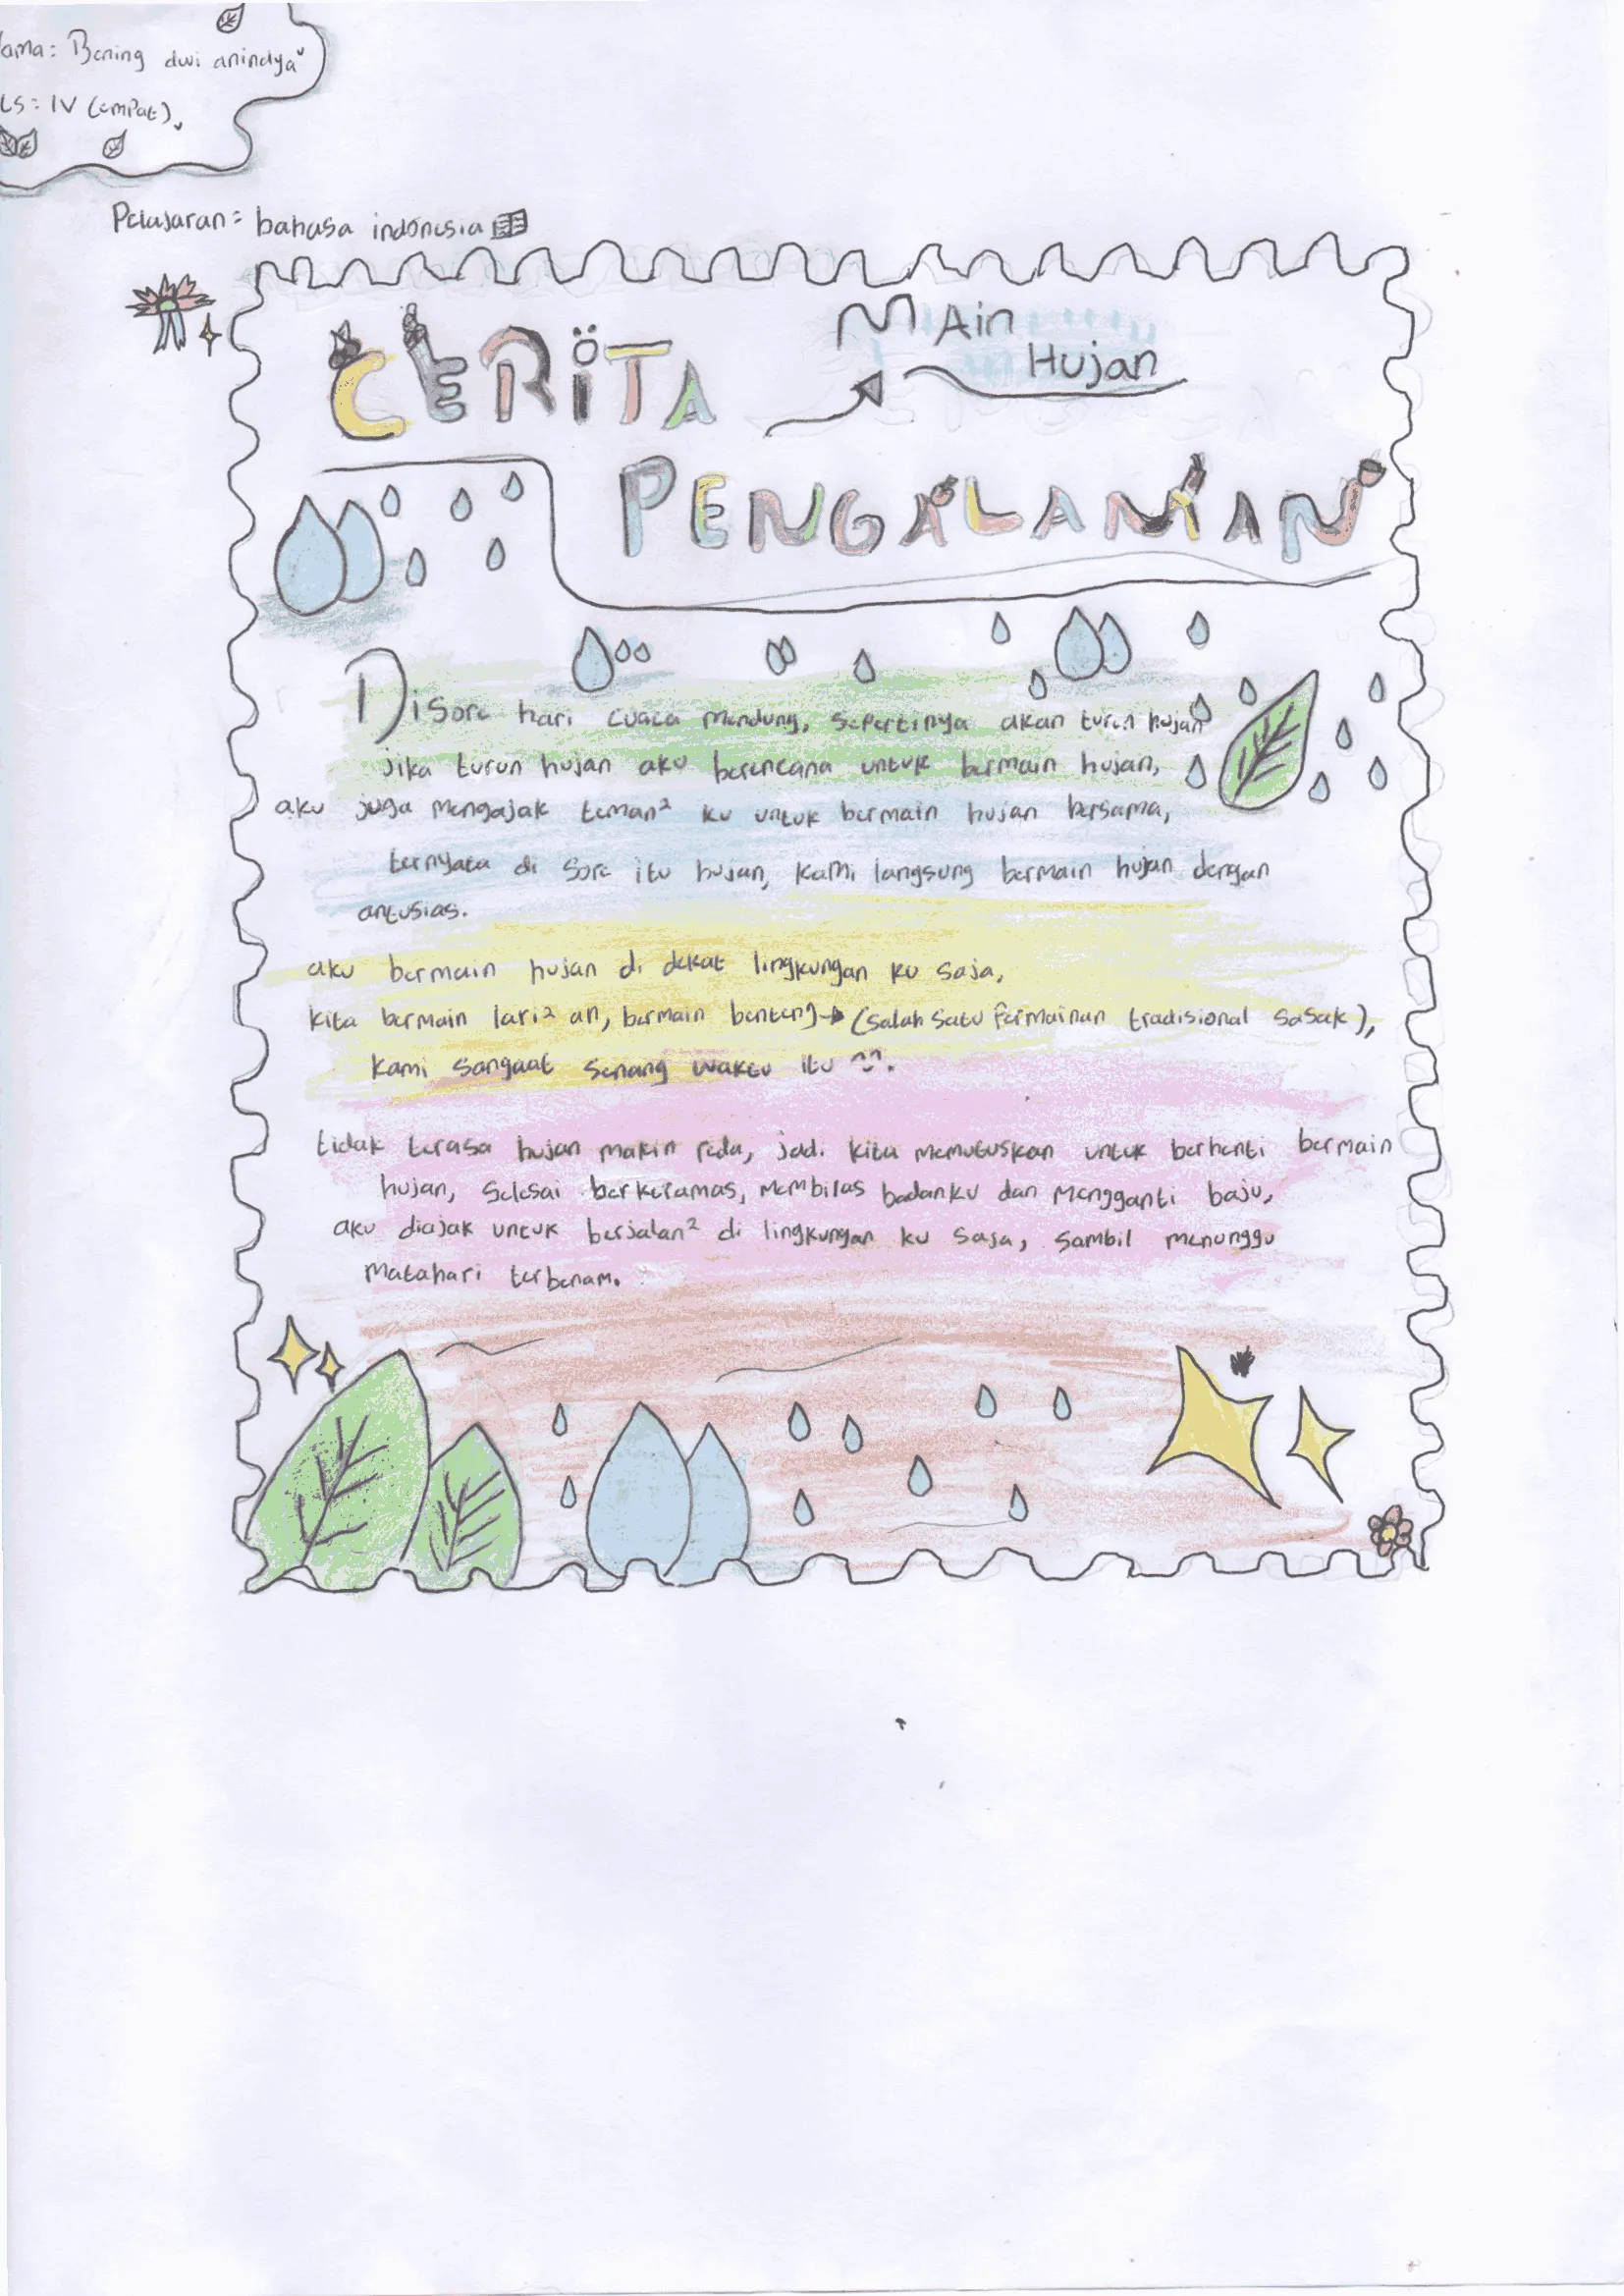 ama: Bening dwi anindya
LS: IV (empat).
Pelajaran: bahasa indonesia
CERITA
MAin
Hujan
PENGALAMAN
Disore hari cuaca mendung, sepertinya akan turun hujan
jika turun hujan aku berencana untuk bermain hujan,
aku juga mengajak teman² ku untuk bermain hujan bersama,
ternyata di sore itu hujan, kami langsung bermain hujan dengan
antusias.
aku bermain hujan di dekat lingkungan ku saja,
kita bermain lari² an, bermain benteng → (salah satu Permainan tradisional sasak),
kami sangaat senang waktu itu ^⌣^.
tidak terasa hujan makin reda, jadi kita memutuskan untuk berhenti bermain
hujan, selesai berkeramas, membilas badanku dan mengganti baju,
aku diajak untuk berjalan² di lingkungan ku saja, sambil menunggu
matahari terbenam.